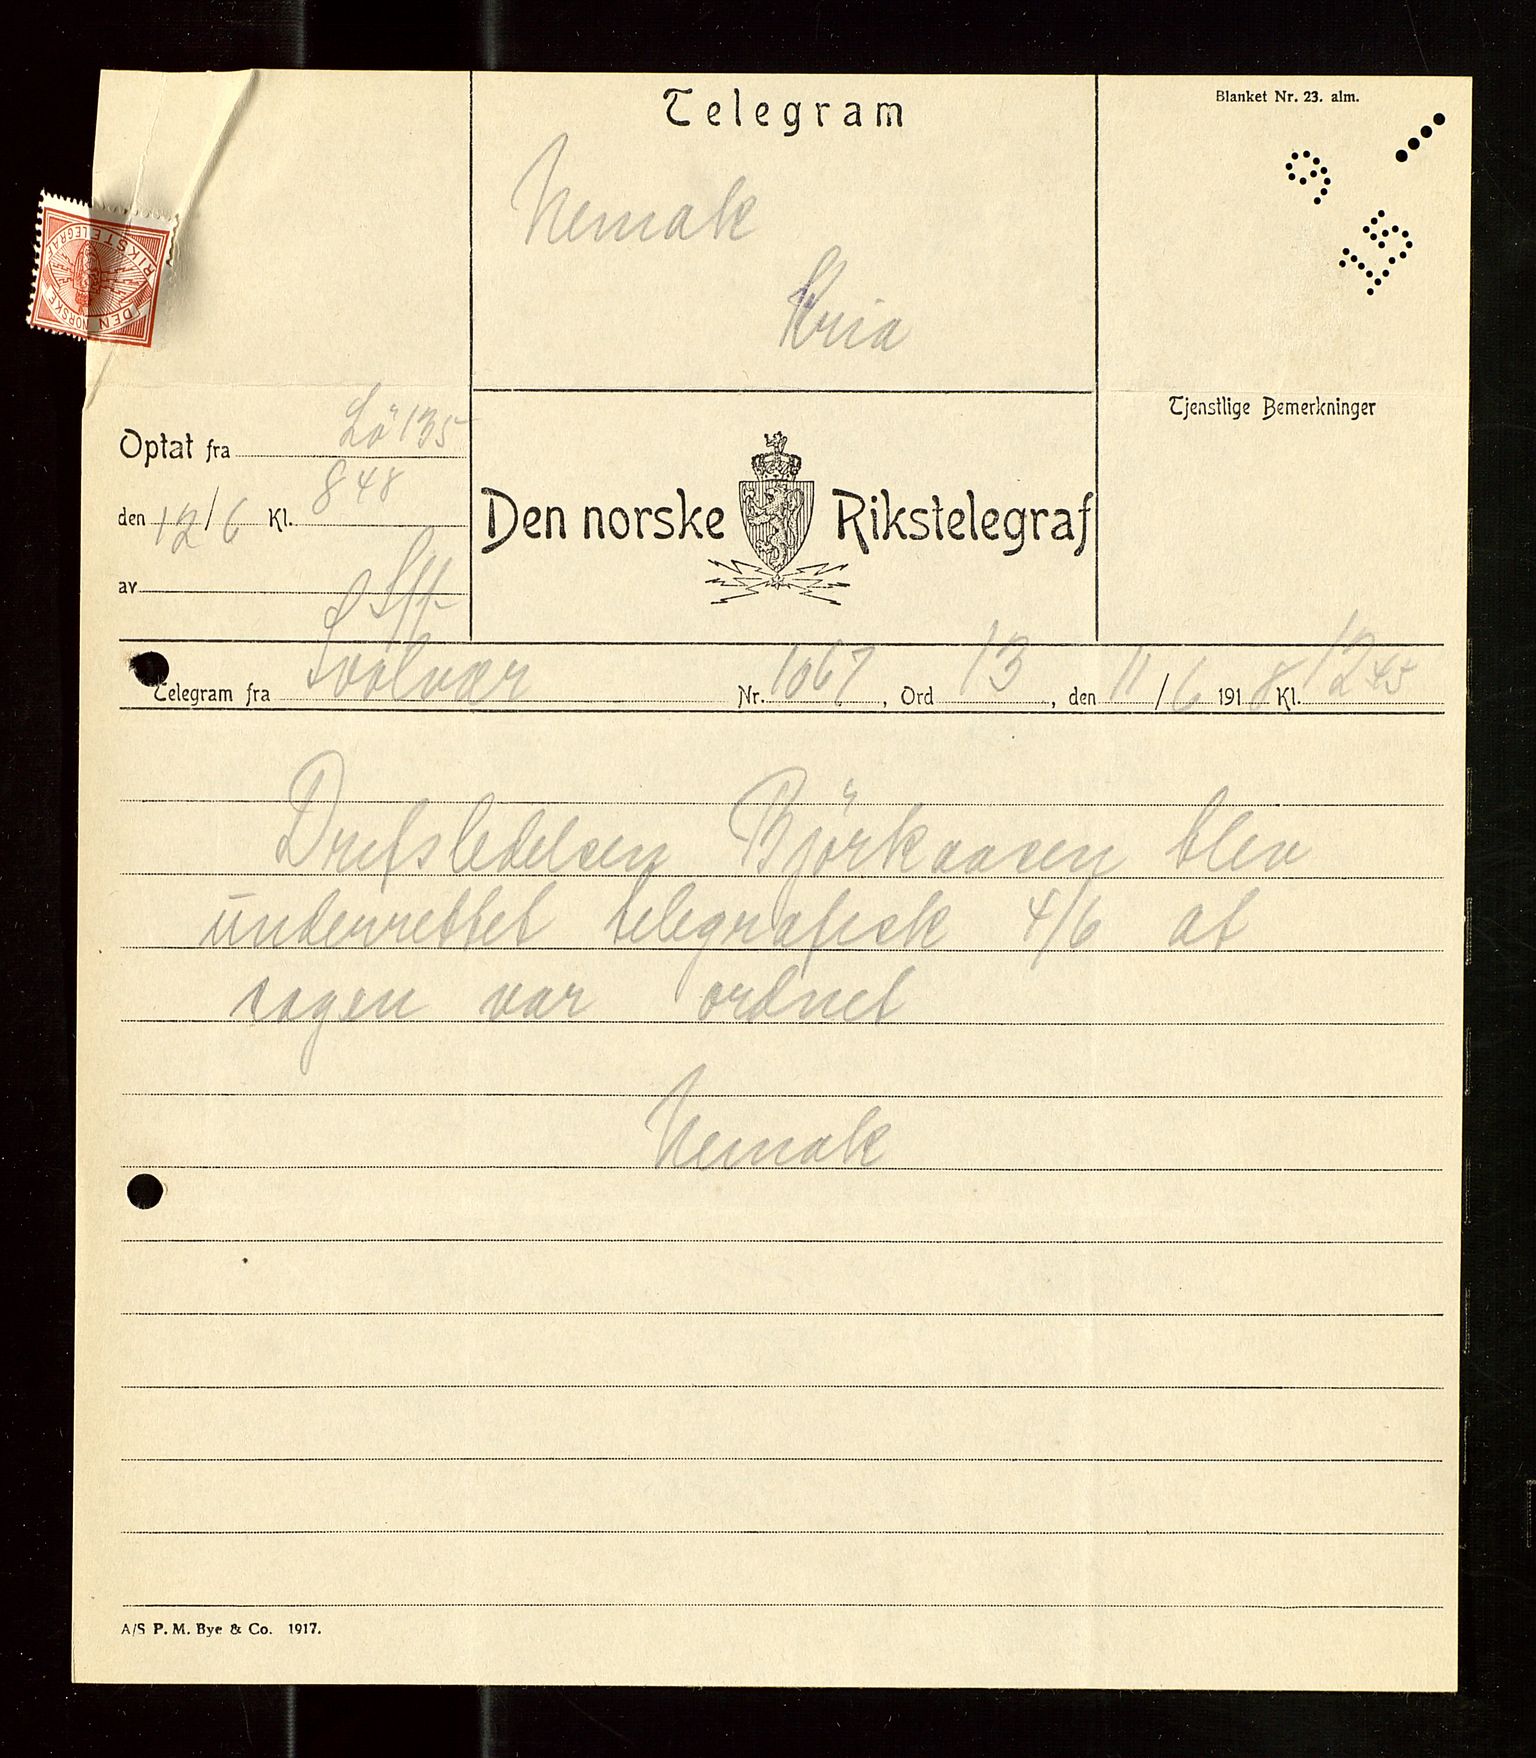 Telegram
Blanket Nr. 23. alm.
9
15
Nemak
Kria
DEN NORSKE RIKSTELEGRAF
Tjenstlige Bemerkninger
Optat fra Lö 135
den 12/6 Kl. 848
av
Den norske Rikstelegraf
Telegram fra Svolvær Nr. 1067, Ord 13, den 11/6 1918 Kl. 12 45
Drifsledelsen Björkaasen blev
underrettet telegrafisk 4/6 at
sagen var ordnet
Nemak
A/S P. M. Bye & Co. 1917.